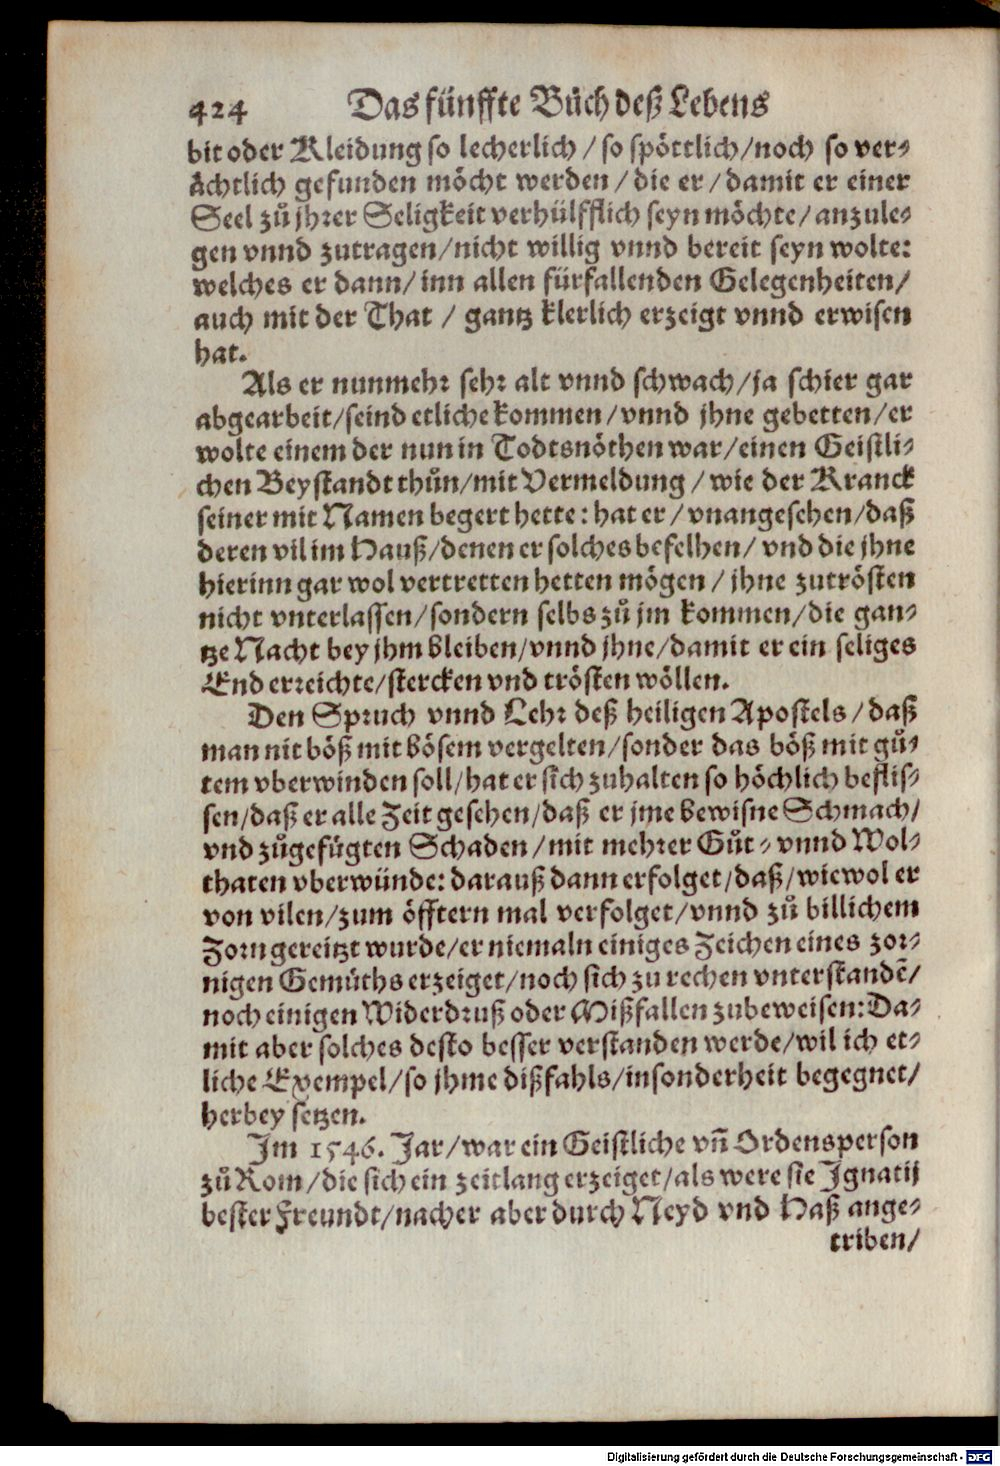 424 Das fünffte Bůch deß Lebens
bit oder Kleidung so lecherlich / so spöttlich/noch so ver-
ächtlich gefunden möcht werden / die er / damit er einer
Seel zů jhrer Seligkeit verhülfflich seyn möchte/ anzule-
gen vnnd zutragen/nicht willig vnnd bereit seyn wolte:
welches er dann/ inn allen fürfallenden Gelegenheiten/
auch mit der That / gantz klerlich erzeigt vnnd erwisen
hat.
Als er nunmehr sehr alt vnnd schwach/ja schier gar
abgearbeit/seind etliche kommen/vnnd jhne gebetten/er
wolte einem der nun in Todtsnöthen war/einen Geistli-
chen Beystandt thůn/mit Vermeldung / wie der Kranck
seiner mit Namen begert hette: hat er / vnangesehen/daß
deren vil im Hauß/denen er solches befelhen/ vnd die jhne
hierinn gar wol vertretten hetten mögen / jhne zutrösten
nicht vnterlassen/sondern selbs zů jm kommen/die gan-
tze Nacht bey jhm bleiben/vnnd jhne/damit er ein seliges
End erreichte/stercken vnd trösten wöllen.
Den Spruch vnnd Lehr deß heiligen Apostels / daß
man nit böß mit bösem vergelten/sonder das böß mit gů-
tem vberwinden soll/hat er sich zuhalten so höchlich beflis-
sen/daß er alle Zeit gesehen/daß er jme bewisne Schmach/
vnd zůgefügten Schaden / mit mehrer Gůt- vnnd Wol-
thaten vberwünde: darauß dann erfolget/daß/wiewol er
von vilen/zum öfftern mal verfolget/vnnd zů billichem
Zorn gereitzt wurde/er niemaln einiges Zeichen eines zor-
nigen Gemüths erzeiget/noch sich zu rechen vnterstandẽ/
noch einigen Widerdruß oder Mißfallen zubeweisen: Da-
mit aber solches desto besser verstanden werde/wil ich et-
liche Exempel/so jhme dißfahls/insonderheit begegnet/
herbey setzen.
Im 1546. Jar/war ein Geistliche vñ Ordensperson
zů Rom/die sich ein zeitlang erzeiget/als were sie Ignatij
bester Freundt/nacher aber durch Neyd vnd Haß ange-
triben/
Digitalisierung gefördert durch die Deutsche Forschungsgemeinschaft - DFG